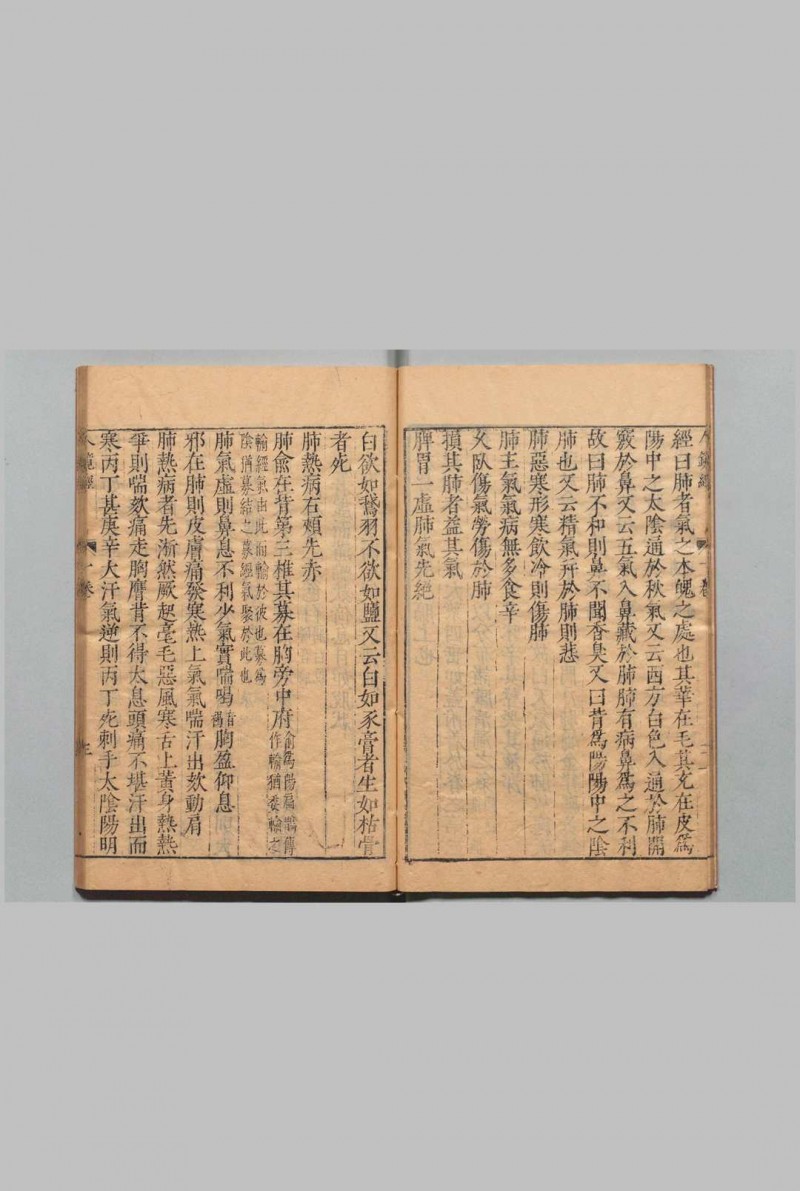 經曰肺者氣之本魄之處也其華在毛其充在皮爲
陽中之太陰通於秋氣又云西方白色入通於肺開
竅於鼻又云五氣入鼻藏於肺肺有病鼻爲之不利
故曰肺不和則鼻不聞香臭又曰背爲陽陽中之陰
肺也又云精氣并於肺則悲
肺惡寒形寒飲冷則傷肺
肺主氣氣病無多食辛
久臥傷氣勞傷於肺
損其肺者益其氣
脾胃一虛肺氣先絶
白欲如鵝羽不欲如鹽又云白如豕膏者生如枯骨
者死
肺熱病右頰先赤
肺兪在背第三椎其募在胸旁中府兪爲陽扁鵲傳作輸猶委輸之
輸經氣由此而輸於彼也募爲陰猶募結之募經氣聚於此也
肺氣虛則鼻息不利少氣實喘喝音褐胸盈仰息
邪在肺則皮膚痛發寒熱上氣氣喘汗出欬動肩
肺熱病者先淅然厥起毫毛惡風寒舌上黃身熱熱
爭則喘欬痛走胸膺背不得太息頭痛不堪汗出而
寒丙丁甚庚辛大汗氣逆則丙丁死刺手太陰陽明
一卷
三